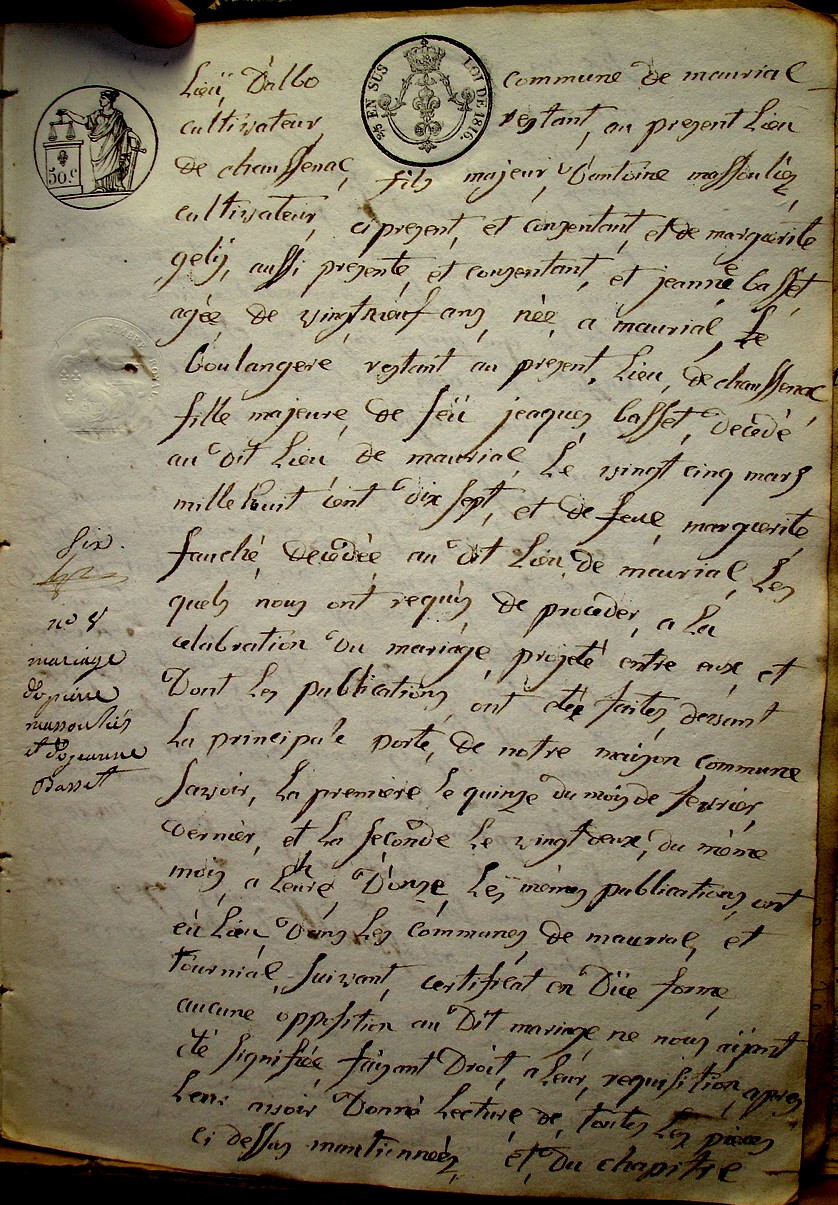 25 EN SUS LOI DE 1816.
50.c
Lieu D'albo commune de mauriat
cultivateur, restant, au present Lieu
de chaussenac, fils majeur, D'antoine massoulier,
cultivateur, ci present, et consentant, et de marguerite
gely, aussi presente, et consentant, et jeanne basset
agée de vingt neuf ans, née, a mauriac,
boulangere restant au present, Lieu, de chaussenac,
fille majeure, de féu jeaques basset, décédé
au dit Lieu de mauriac, Le vingt cinq mars
mille huit cent dix sept, et de feue marguerite
fauché, decedée au dit Lieu de mauriac, Les
quels nous ont requis de proceder, a La
celabration du mariage, projeté entre eux et
Dont Les publications, ont été faites, devant
La principale porte, de notre maison commune
savoir, La premiere Le quinze du mois de fevrier,
dernier, et La seconde Le vingt deux, du même
mois, a Leure D'onze, Les mêmes publications ont
eu Lieu, Dans Les communes, de mauriac, et
tourniac, suivant, certificat en Düe forme,
aucune opposition au Dit mariage, ne nous aïjant
été signifiée, faisant Droit, a Leur, requisition, apres
Leur avoir Donné Lecture, de, toutes Les pieces
ci dessus mantionnées, et, Du chapitre
six.
n° 8
mariage
de pierre
massouliés
et de jeanne
Basset